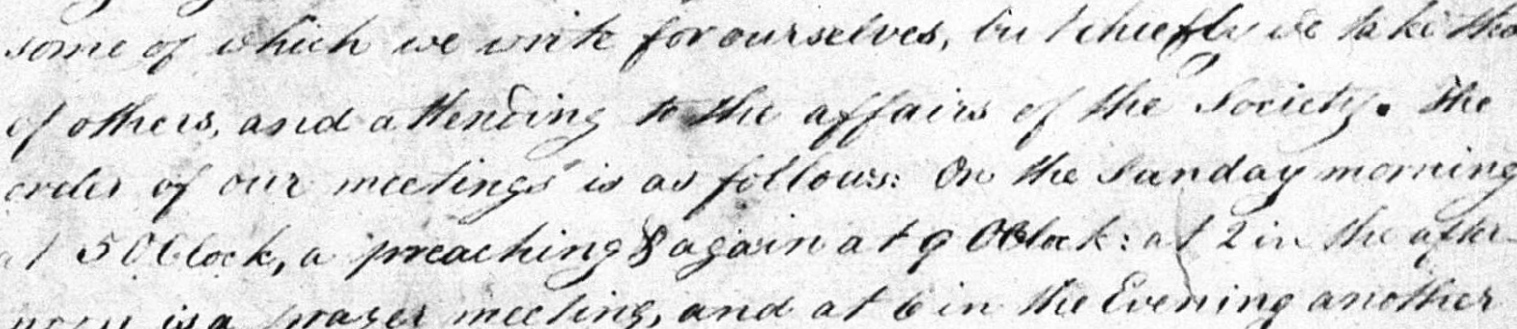 some of which we write for ourselves, but chiefly we take tho
of others, and attending to the affairs of the Society. The
order of our meetings is as follows: On the Sunday morning
at 5 OClock, a preaching & again at 9 OClock: at 2 in the after-
noon is a prayer meeting, and at 6 in the Evening another